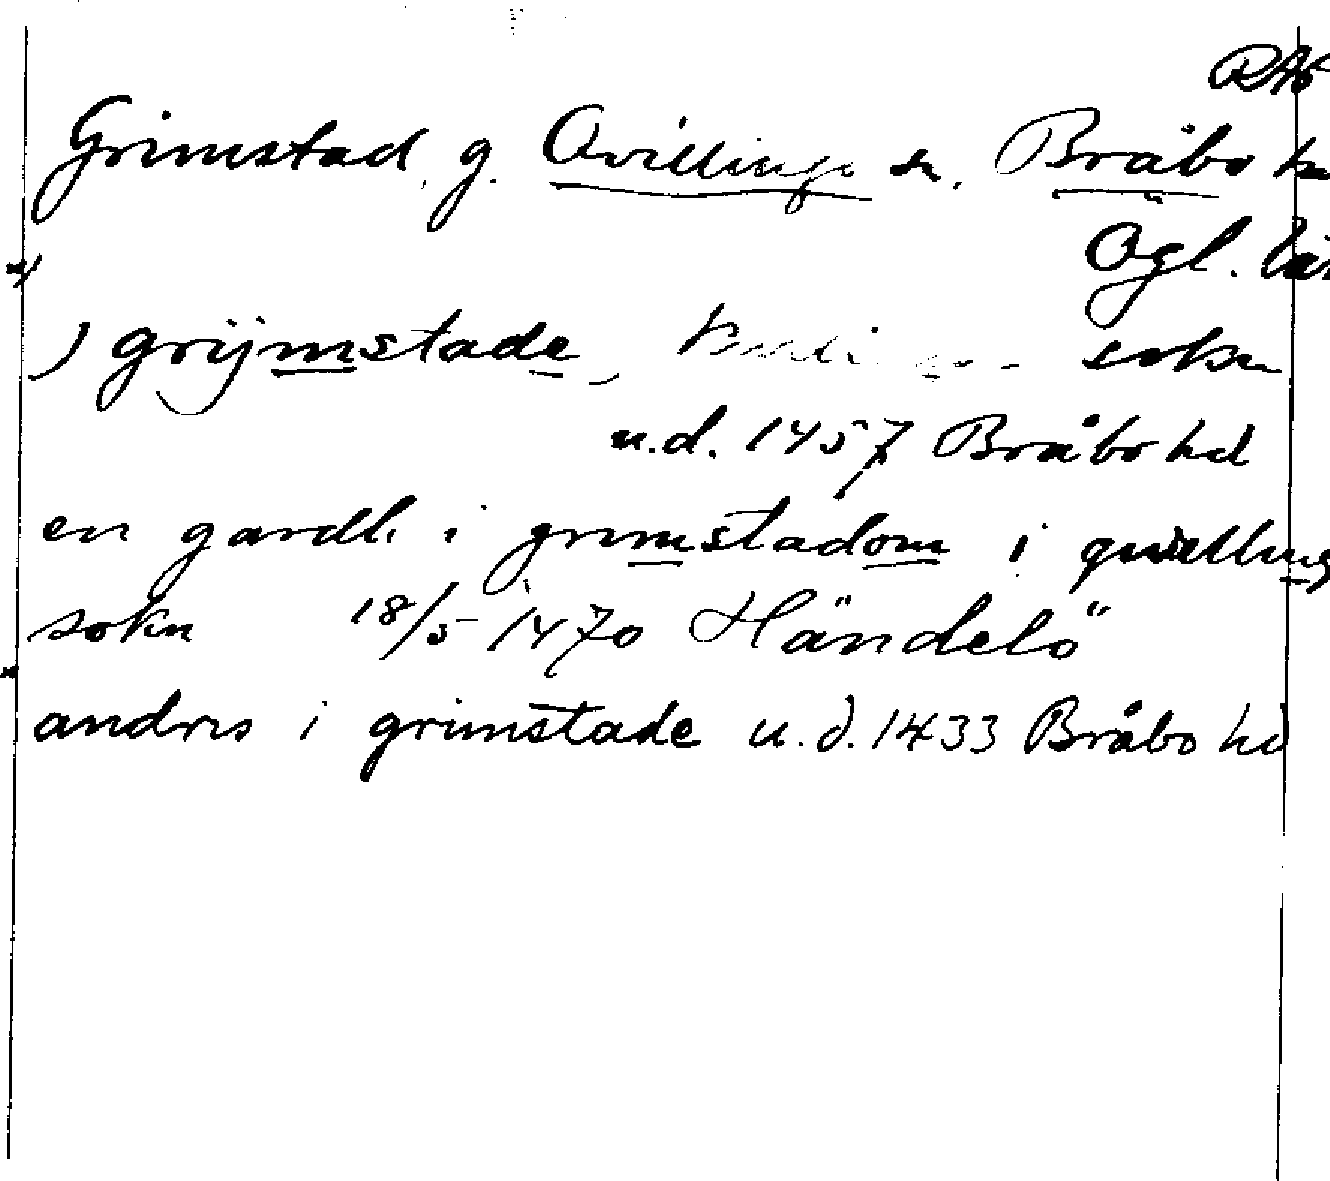 RAp
Grimstad, g. Qvillinge sn, Bråbo h
Ögl. län
) grijmstade, sokn
u.d. 1457 Bråbo hd
en gardh i grimstadom i quilling
sokn 18/5 1470 Händelö
andres i grimstade u.d. 1433 Bråbo hd